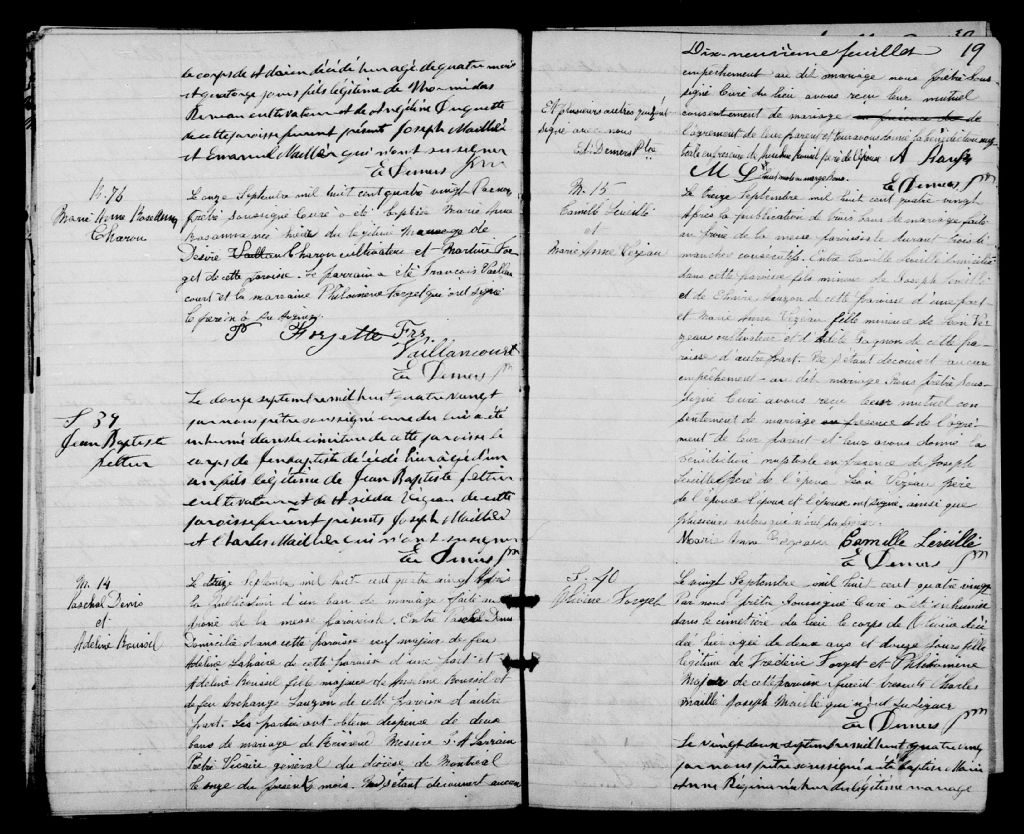 le corps de décédé hier agé de quatre mois
et quatorze jours fils légitime de
cultivateur et de
de cette paroisse furent présents Joseph Maillé
et Emanuel Maillé qui n'ont su signer
Ed Demers Ptre
B. 76
Marie Anne Rose Anna
Charon
Le onze Septembre mil huit cent quatre vingt Par nous
prêtre soussigné Curé a été baptisé Marie Anna
Rosanna né hier du légitime mariage de
Désiré Charon cultivateur et Martine For
get de cette paroisse. Le parrain a été Francois Vaillan
court et la marraine Philomène Forget qui ont signé
le père n'a su signer
P Forgette Frs.
Vaillancourt
Ed Demers Ptre
S 39
Jean Baptiste
Le douze septembre mil huit quatre vingt
par nous prêtre soussigné curé du lieu a été
inhumé dans le cimetière de cette paroisse le
corps de Jn baptiste décédé hier agé d'un
an fils légitime de Jean Baptiste
cultivateur et de Vezeau de cette
paroisse furent présents Joseph Maillé
et Charles Maillé qui n'ont su signer
Ed Demers Ptre
M. 14
Paschal Denis
et
Adeline Roussil
Le Septembre mil huit cent quatre vingt Après
la publication d'un ban de mariage faite au
prone de la messe paroissiale, Entre Paschal Denis
Domicilié dans cette paroisse veuf majeur de feu
Adeline Lahaise de cette paroisse d'une part et
Adeline Roussil fille majeure de Roussil et
de feu Archange Lauzon de cette paroisse d'autre
part. Les parties ont obtenu dispense de deux
bans de mariage de Messire Lorrain
Prêtre Vicaire général du diocèse de Montréal
le onze du présent mois. Ne s'étant découvert aucun
Dix-neuvième feuillet 19
empêchement au dit mariage nous prêtre sous-
signé Curé du lieu avons reçu leur mutuel
consentement de mariage
l'agrément de leur parent et leur avons donné la bénédiction nup
tiale en présence de
Et plusieurs autres qui n'ont
signé avec nous
Ed. Demers Ptre
Ed Demers Ptre
M. 15
Camille Leveillé
et
Marie Anne Vezeau
Le treize Septembre mil huit cent quatre vingt
Après la publication de trois bans de mariage faite
au prone de la messe paroissiale durant trois di
manches consécutifs. Entre Camille Leveillé domicilié
dans cette paroisse fils mineur de Joseph Leveillé
et de Lauzon de cette paroisse d'une part
et Marie Anne Vezeau fille mineure de Léon Ve
zeau cultivateur et d' Gagnon de cette pa
roisse d'autre part. Ne s'étant découvert aucun
empêchement au dit mariage Nous prêtre sous-
signé Curé avons reçu leur mutuel con
sentement de mariage de l'agré
ment de leur parent et leur avons donné la
bénédiction nuptiale en présence de Joseph
Leveillé père de l'époux Léon Vezeau père
de l'épouse l'époux et l'épouse ont signé, ainsi que
plusieurs autres qui n'ont su signer.
Marie Anne Camille Léveillé
Ed Demers Ptre
S. 40
Forget
Le vingt Septembre mil huit cent quatre vingt
Par nous prêtre soussigné Curé a été inhumé
dans le cimetière du lieu le corps de décé
dé hier agée de deux ans et douze jours fille
légitime de Frédéric Forget et Philomène
Major de cette paroisse furent présents Charles
Maillé Joseph Maillé qui n'ont su signer
Ed Demers Ptre
Le vingt deux septembre mil huit quatre vingt
par nous prêtre soussigné a été baptisé Marie
Anne Régina née hier du légitime mariage